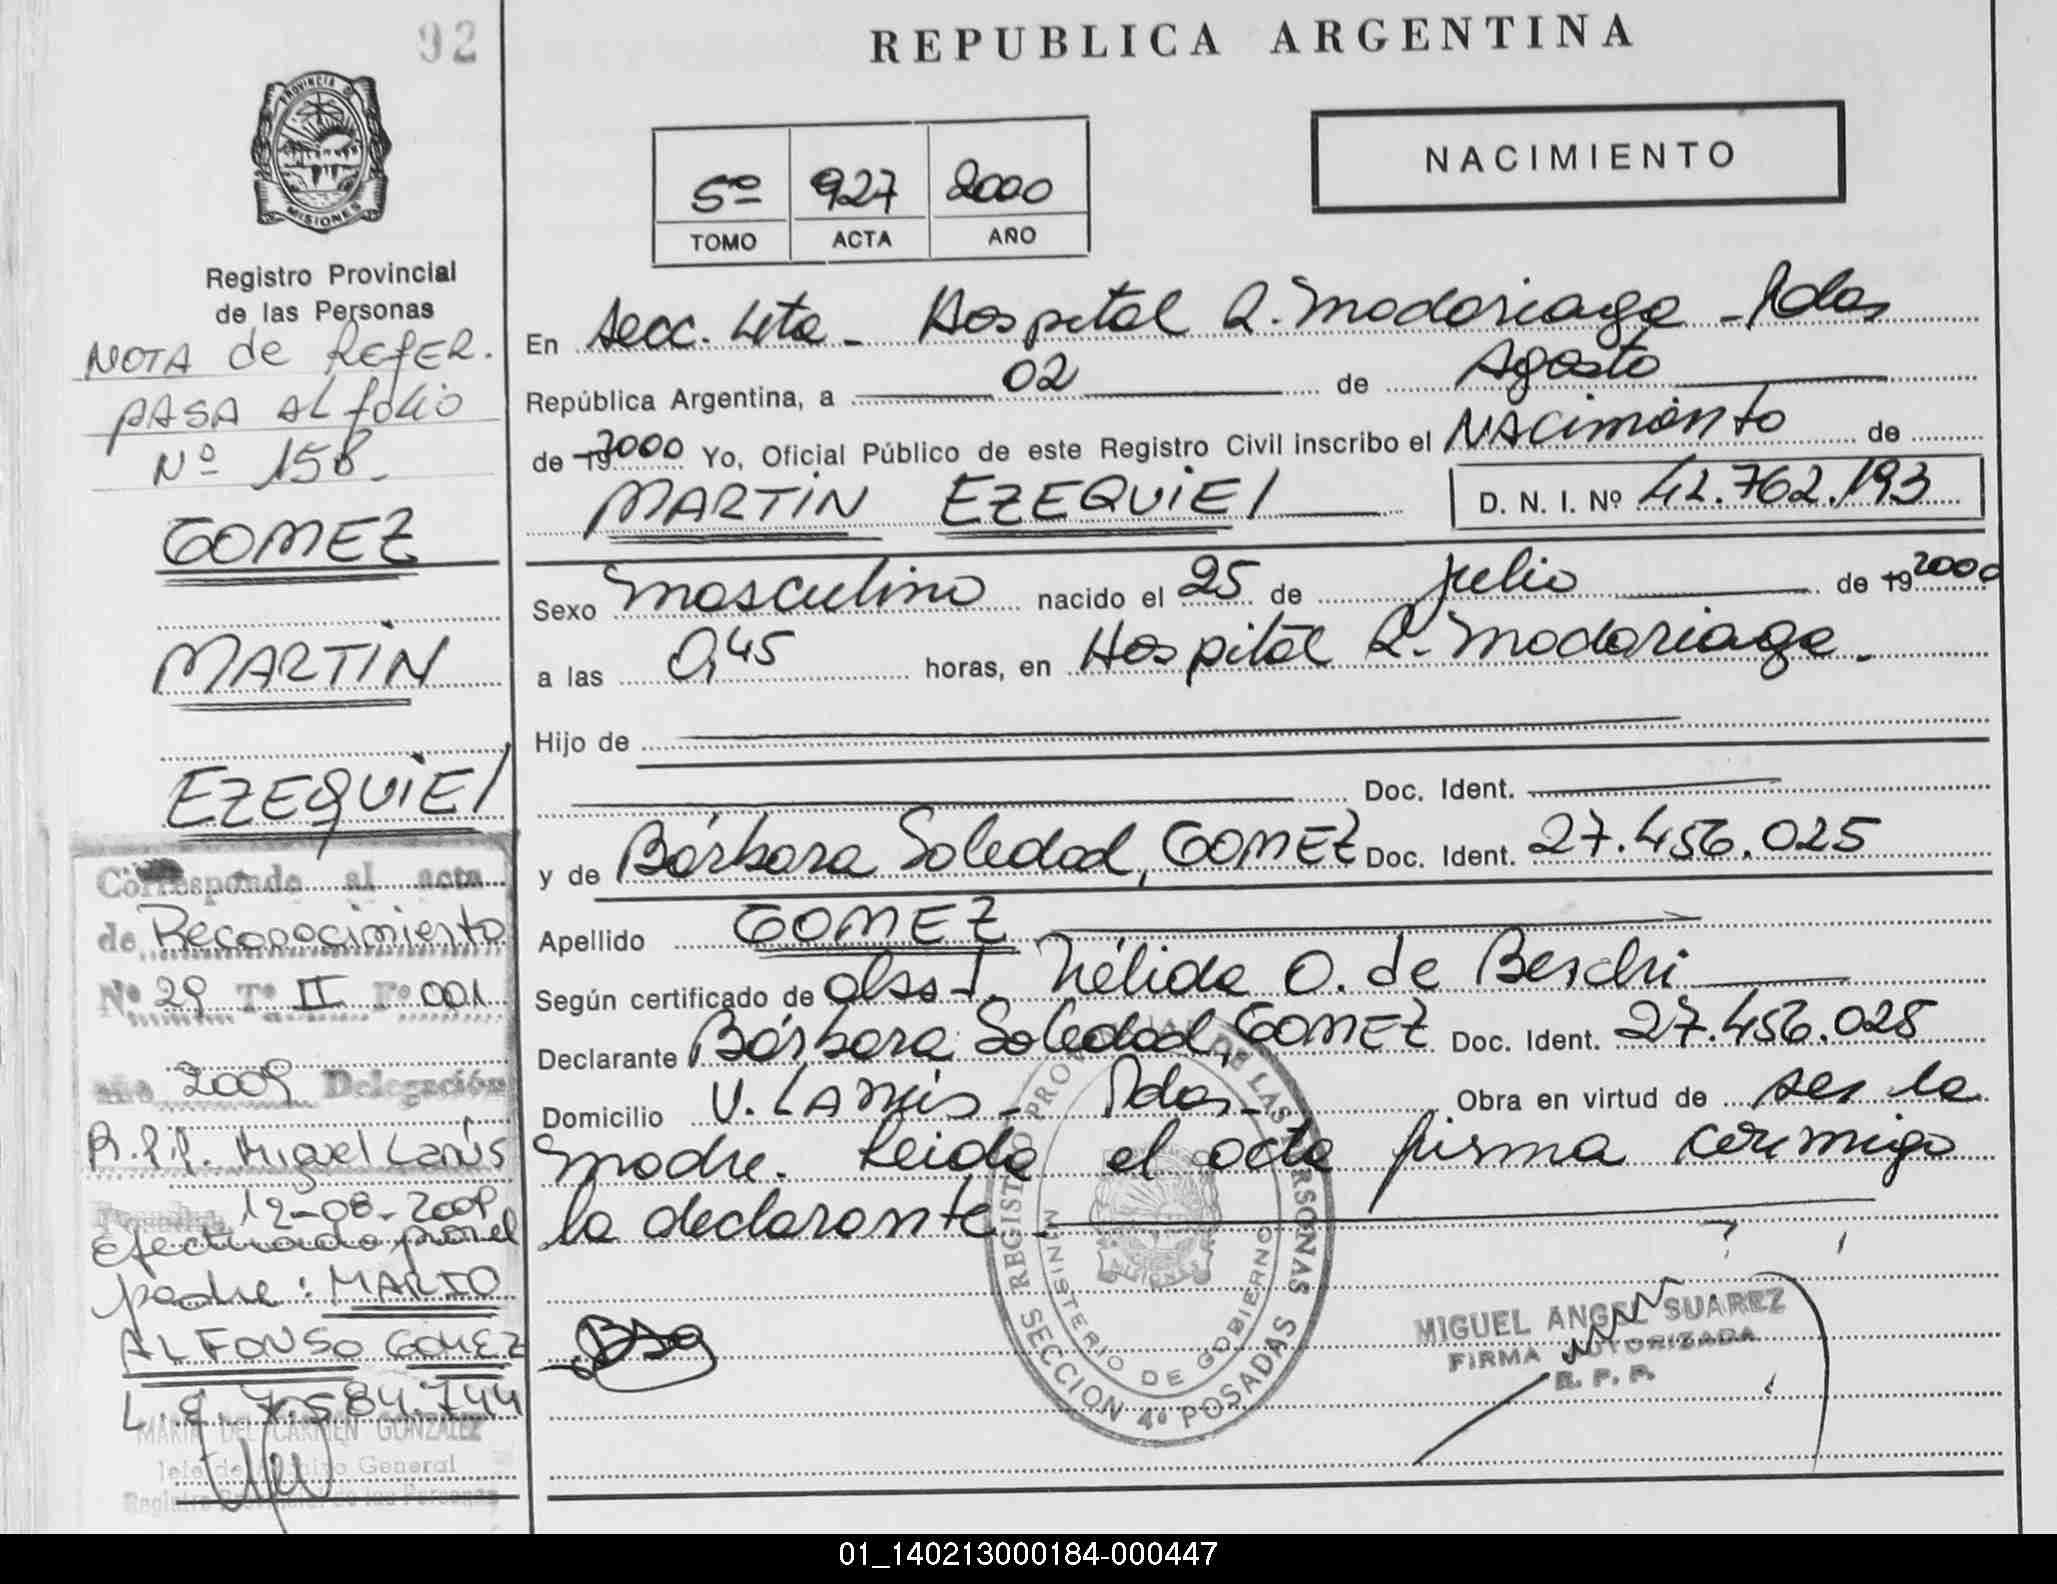 92
REPUBLICA ARGENTINA
PROVINCIA DE
MISIONES
Registro Provincial
de las Personas
NOTA de REFER.
PASA AL folio
Nº 158.
GOMEZ
MARTIN
EZEQUIEl
Corresponde al acta
de Reconocimiento
Nº 29 Tº II Fº 001
año 2009 Delegación
R.P.P. Miguel Lanús
Posadas, 12-08-2009
Efectuado por el
padre: MARIO
ALFONSO GOMEZ
L.E. 7.584.744
MARIA DEL CARMEN GONZALEZ
General
Registro Provincial de las Personas
5º 927 2000
TOMO ACTA AÑO
NACIMIENTO
En Secc. 4ta - Hospital R. Madariaga - Pdas
República Argentina, a 02 de Agosto
de 19 2000 Yo, Oficial Público de este Registro Civil inscribo el NACimiento de
MARTIN EZEQUIEl D. N. I. Nº 42.762.193
Sexo Masculino nacido el 25 de Julio de 19 2000
a las 0,45 horas, en Hospital R. Madariaga.
Hijo de
Doc. Ident.
y de Bárbara Soledad, GOMEZ Doc. Ident. 27.456.025
Apellido GOMEZ
Según certificado de Nélida O. de
Declarante Bárbara Soledad, GOMEZ Doc. Ident. 27.456.025
Domicilio V. LANUS - Pdas - Obra en virtud de ser la
madre. Leida el acta firma conmigo
la declarante.
REGISTRO PROVINCIAL DE LAS PERSONAS
MINISTERIO DE GOBIERNO
MISIONES
SECCION 4ª POSADAS
MIGUEL ANGEL SUAREZ
FIRMA AUTORIZADA
R. P. P.
01_140213000184-000447